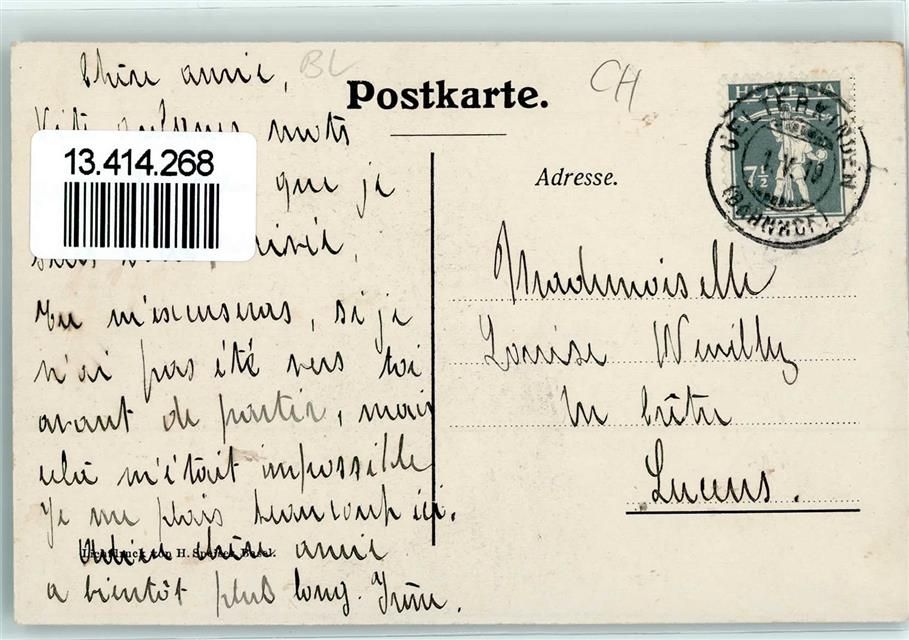 Chère amie,
BL
Vite quelques mots
13.414.268
que je
arrivée,
Tu m'excuseras, si je
n'ai pas été vers toi
avant de partir, mais
cela m'était impossible
Je me plais beaucoup ici.
Lichtdruck von H. Speiser, Basel.
Adieu chère amie
a bientôt plus long.
Postkarte.
CH
HELVETIA
7½
GELTERKINDEN
(BAHNHOF)
Adresse.
Mademoiselle
Louise
Lucens.